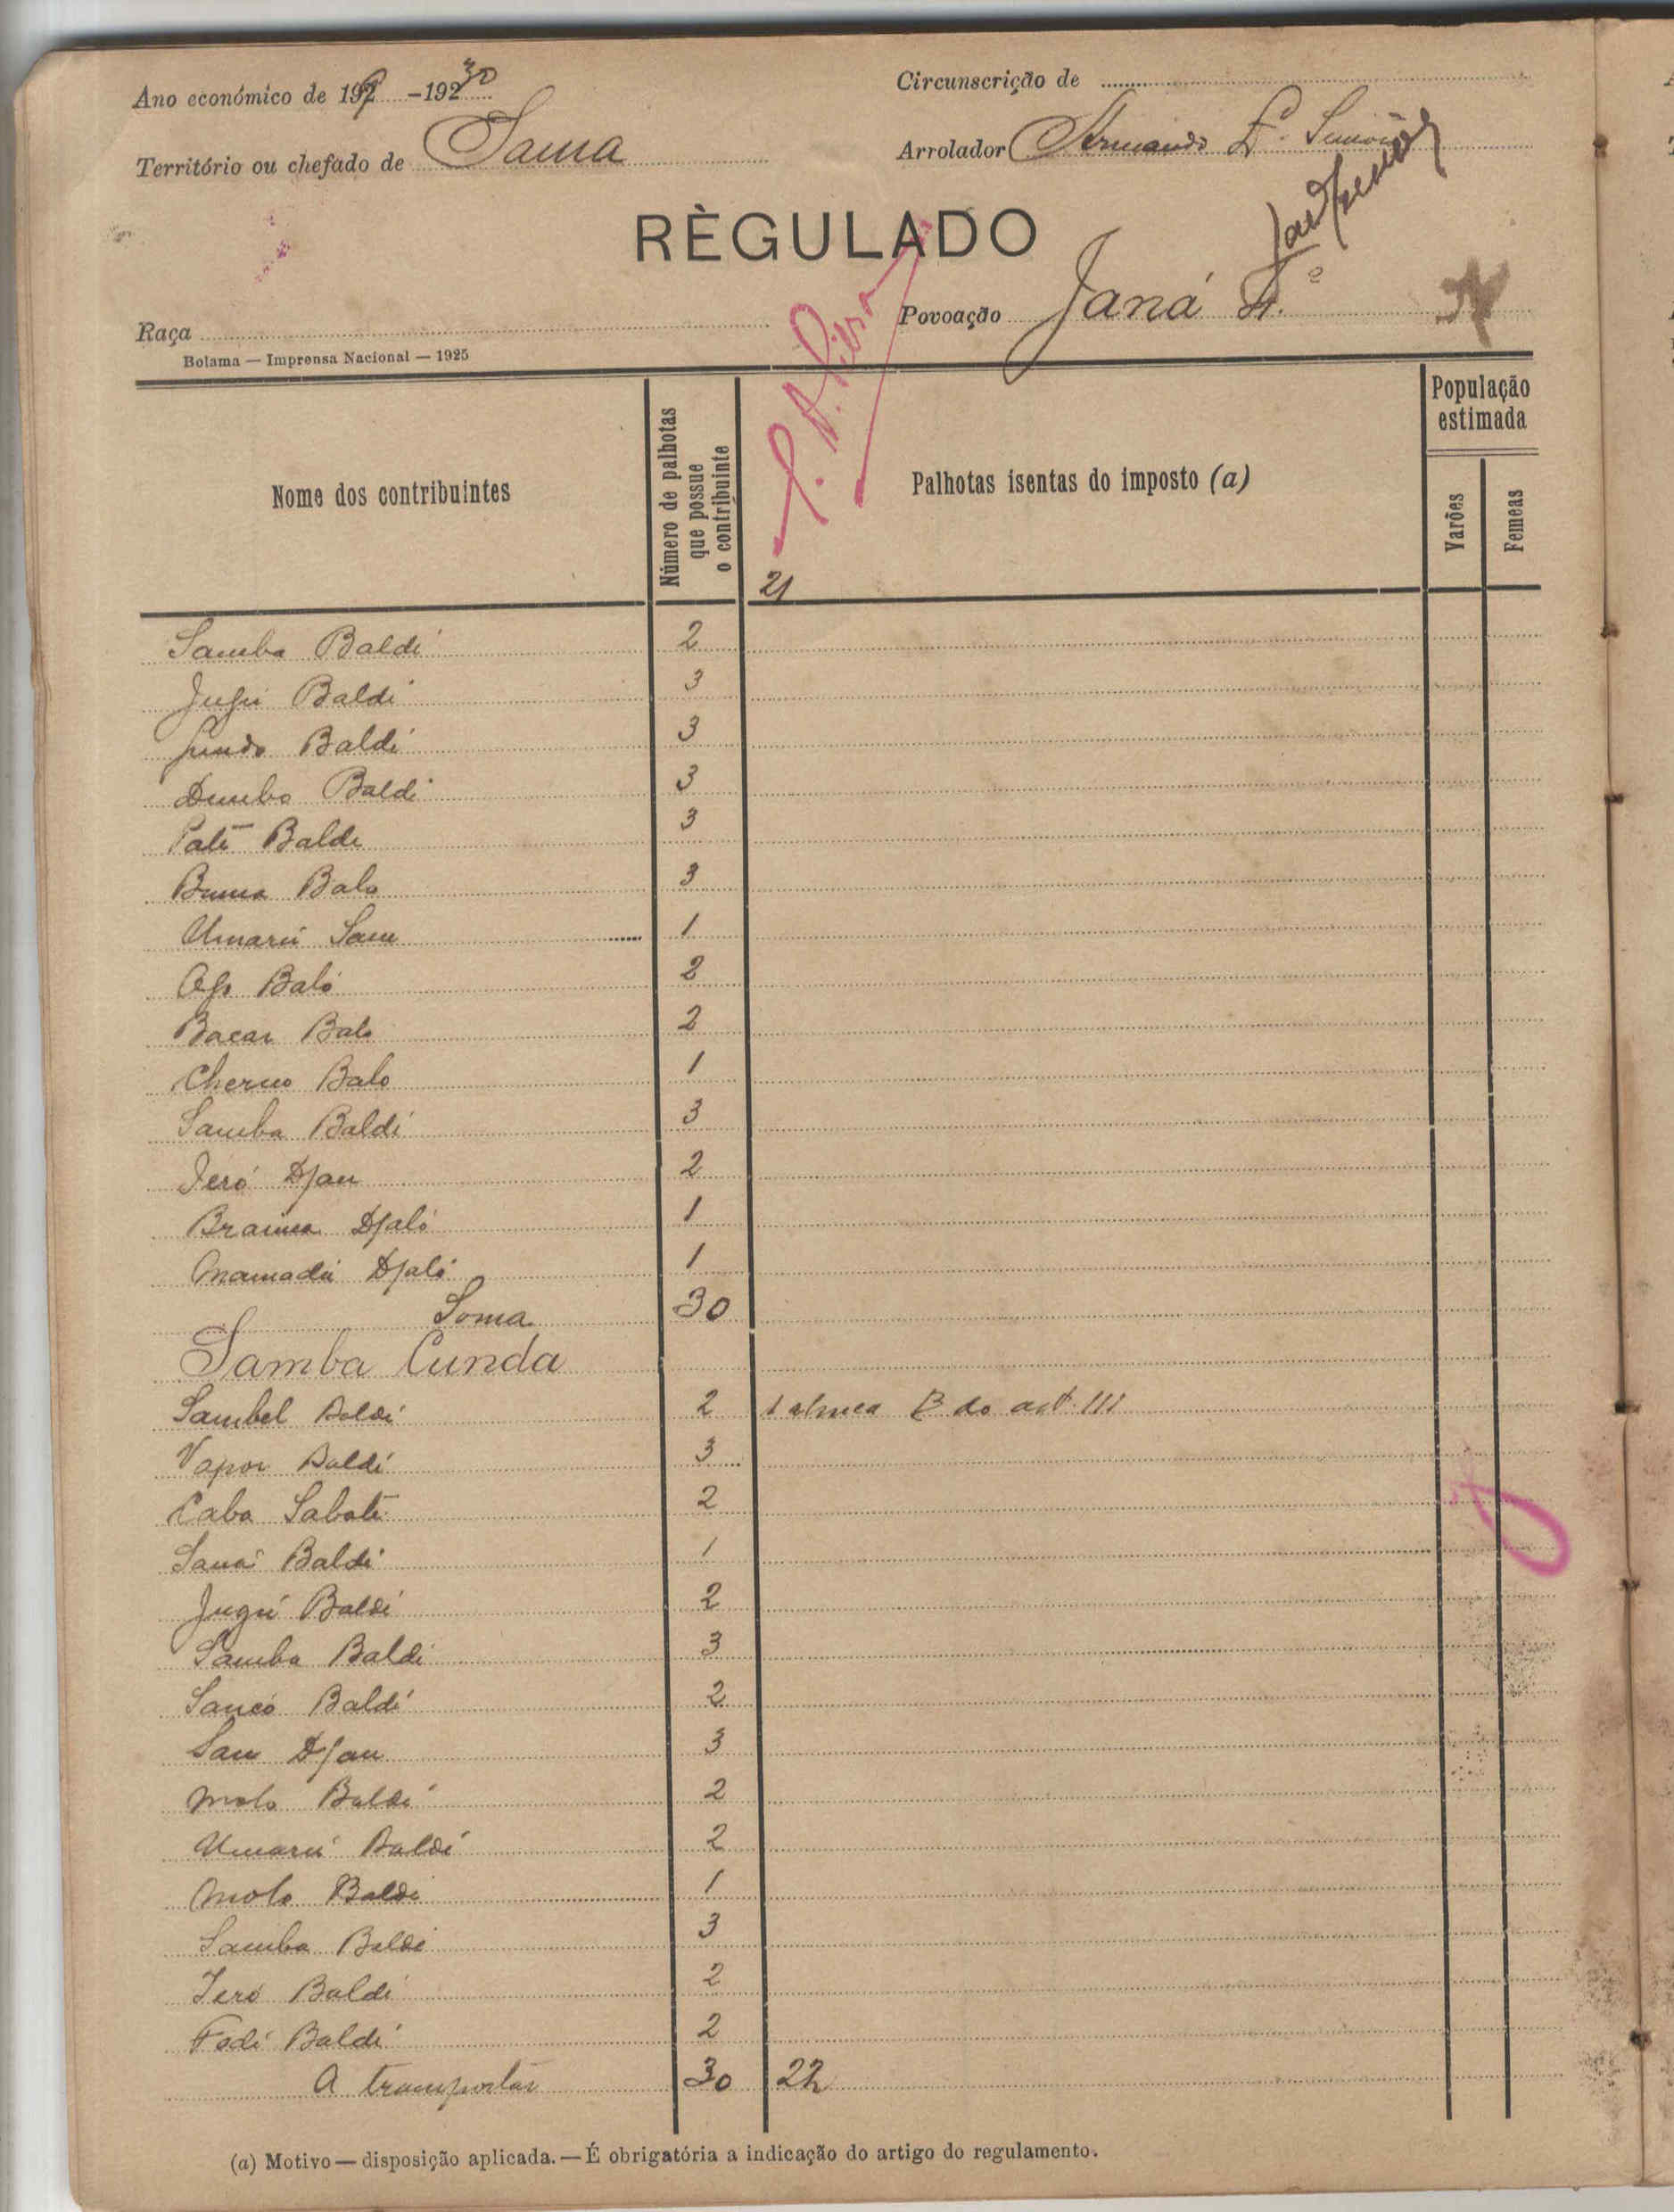 Ano económico de 192 -1930
Circunscrição de
Território ou chefado de Sama
Arrolador Armando
RÈGULADO
Raça
Povoação Janá
Bolama — Imprensa Nacional — 1925
Nome dos contribuintes
Número de palhotas que possue o contribuinte
Palhotas isentas do imposto (a)
População estimada
Varões
Femeas
21
Samba Baldé 2
Baldé 3
Baldé 3
Dembo Baldé 3
Paté Baldé 3
Balo 3
Umarú Sane 1
Baló 2
Bacar Balo 2
Cherno Balo 1
Samba Baldé 3
Jeró Djau 2
Braima Djaló 1
Mamadú Djaló 1
Soma 30
Samba Cunda
Sambel Baldé 2 1 alinea B do artº. III
Vapor Baldé 3
Caba 2
Baldé 1
Jugú Baldé 2
Samba Baldé 3
Sancó Baldé 2
Sau Djau 3
Molo Baldé 2
Umarú Baldé 2
Molo Baldé 1
Samba Baldé 3
Jeró Baldé 2
Fodé Baldé 2
A transportar 30 22
(a) Motivo — disposição aplicada. — É obrigatória a indicação do artigo do regulamento.